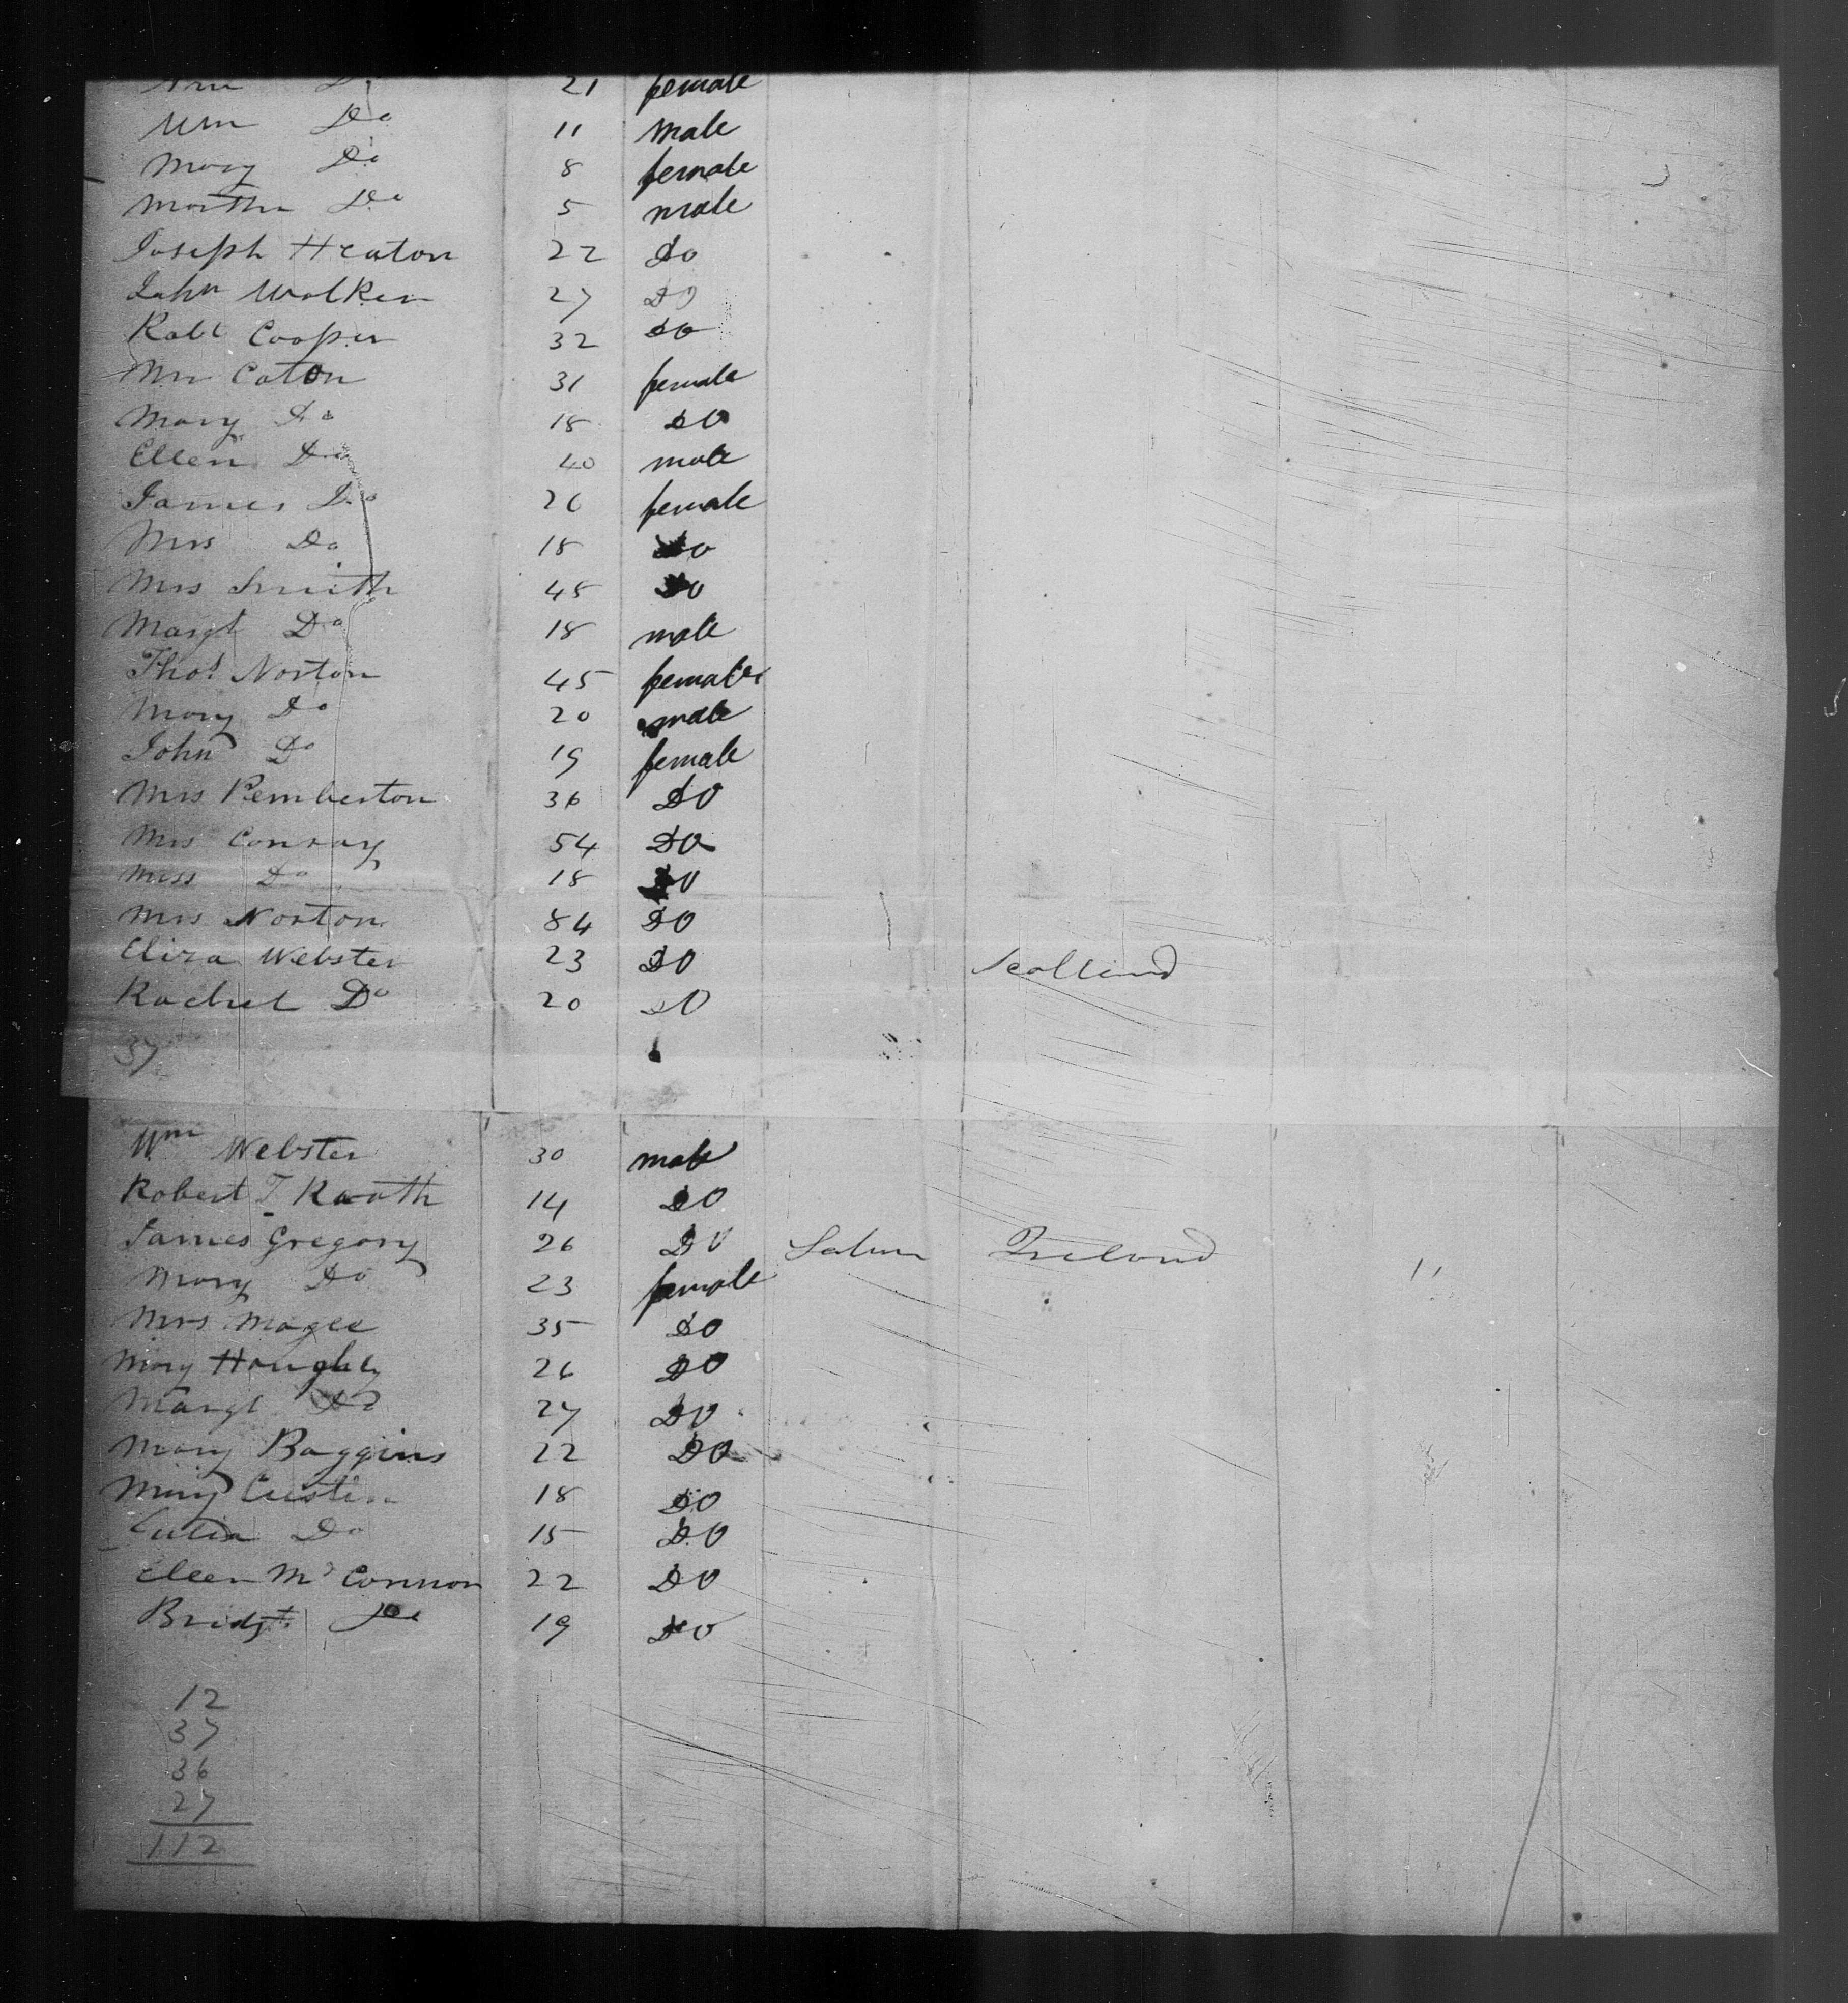 Ann Do 21 female
Wm Do 11 male
Mary Do 8 female
Martha Do 5 male
Joseph Heaton 22 Do
John Walker 27 Do
Robt Cooper 32 Do
Mrs Caton 31 female
Mary Do 18 Do
Ellen Do 40 male
James Do 26 female
Mrs Do 18 Do
Mrs Smith 45 Do
Margt Do 18 male
Thos Norton 45 female
Mary Do 20 male
John Do 19 female
Mrs Pemberton 36 Do
Mrs Conray 54 Do
Miss Do 18 Do
Mrs Norton 84 Do
Eliza Webster 23 Do Scotland
Rachel Do 20 Do
37
Wm Webster 30 male
Robert T 14 Do
James Gregory 26 Do Ireland 11
Mary Do 23 female
Mrs Magee 35 Do
Mary 26 Do
Margt Do 27 Do
Mary Baggins 22 Do
Mary 18 Do
Julia Do 15 Do
Ellen Mc Connon 22 Do
Bridgt Do 19 Do
12
37
36
27
112